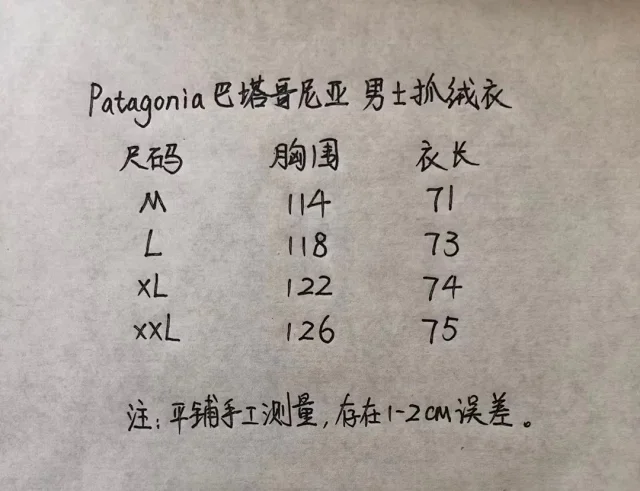 Patagonia 巴塔哥尼亚 男士抓绒衣
尺码 胸围 衣长
M 114 71
L 118 73
XL 122 74
XXL 126 75
注:平铺手工测量,存在1-2CM误差。